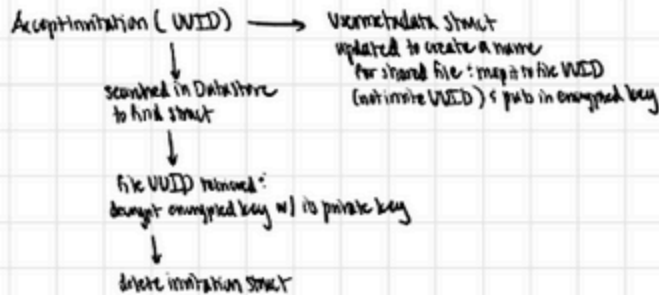 AcceptInvitation(UUID) → Usermetadata struct
updated to create a name
for shared file : map it to file UUID
(not invite UUID) & pub in encrypted key
searched in Datastore
to find struct
file UUID retrieved :
decrypt encrypted key w/ its private key
delete invitation struct